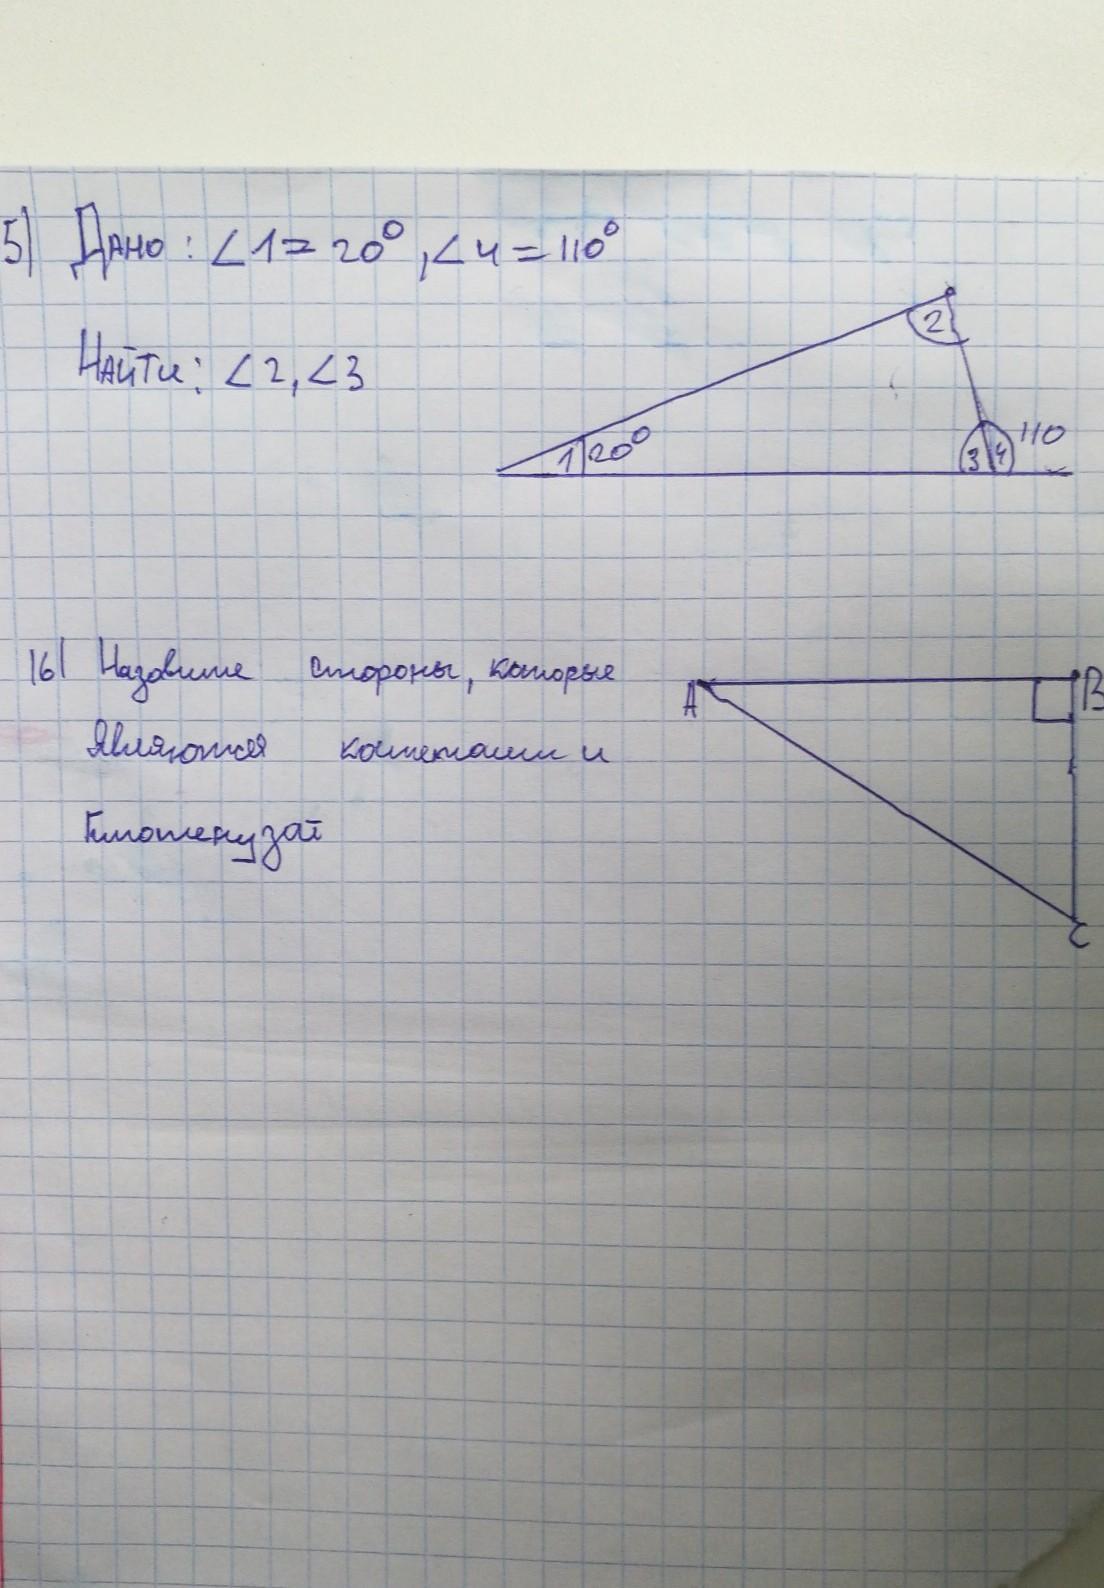 5) Дано: ∠1 = 20°, ∠4 = 110°
Найти: ∠2, ∠3
2
1 20°
3 4 110
16) Назовите стороны, которые
являются катетами и
гипотенузой
A B
C